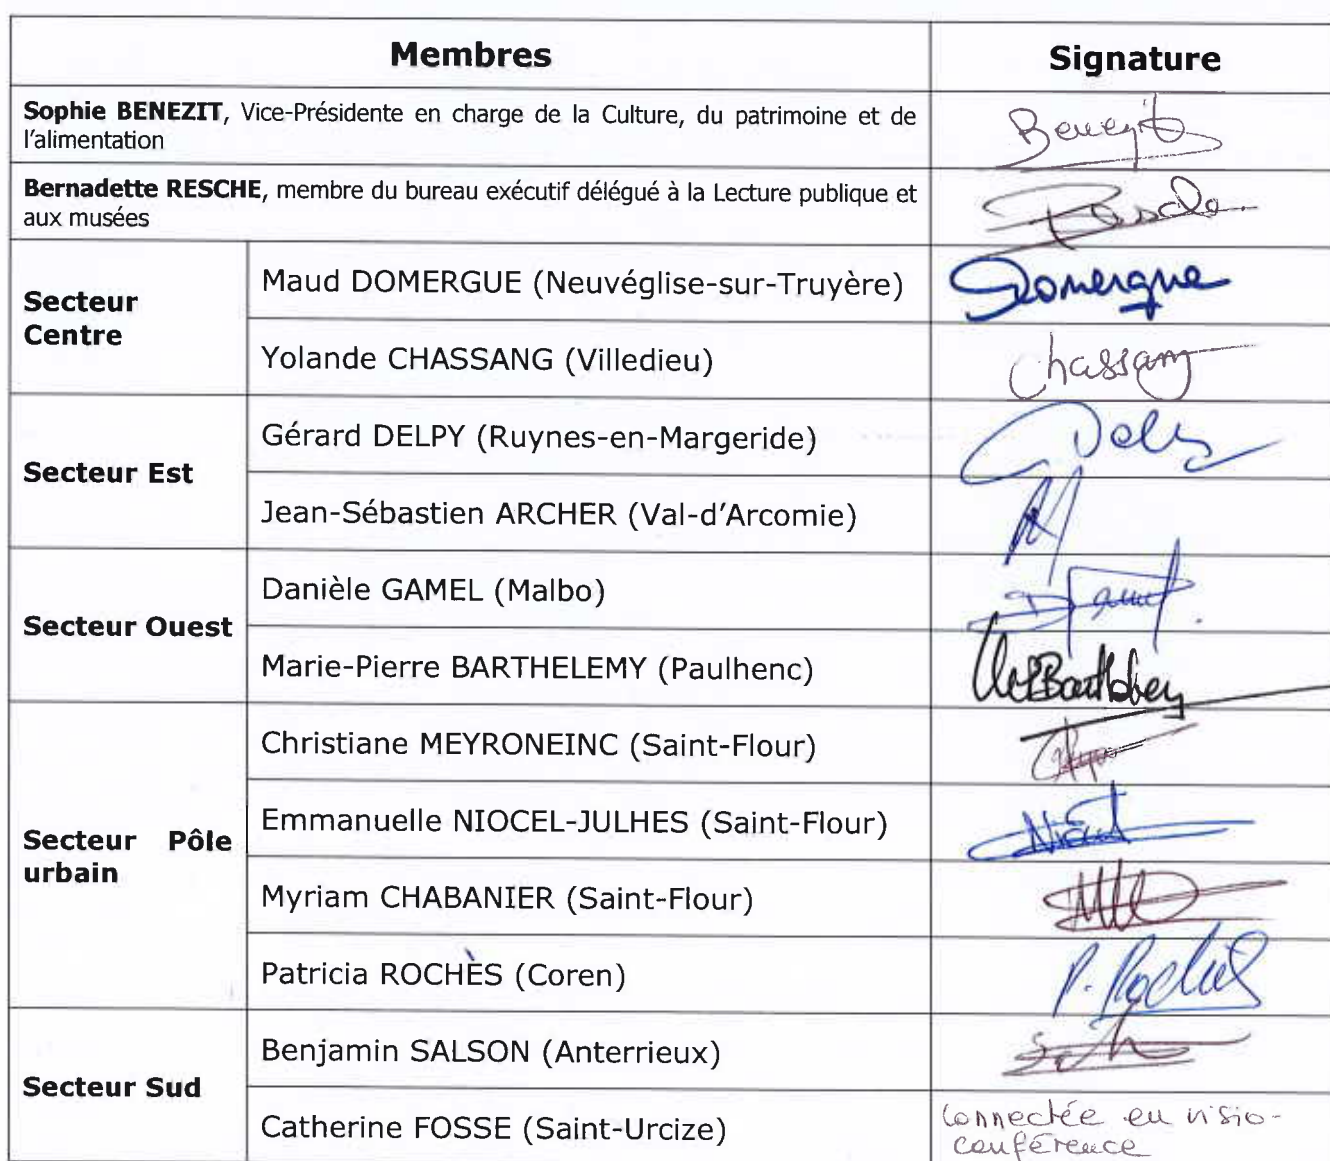 Membres Signature
Sophie BENEZIT, Vice-Présidente en charge de la Culture, du patrimoine et de
l'alimentation
Benezit
Bernadette RESCHE, membre du bureau exécutif délégué à la Lecture publique et
aux musées
Secteur
Centre
Maud DOMERGUE (Neuvéglise-sur-Truyère) Domergue
Yolande CHASSANG (Villedieu) Chassang
Secteur Est
Gérard DELPY (Ruynes-en-Margeride)
Jean-Sébastien ARCHER (Val-d'Arcomie)
Secteur Ouest
Danièle GAMEL (Malbo)
Marie-Pierre BARTHELEMY (Paulhenc)
Secteur Pôle
urbain
Christiane MEYRONEINC (Saint-Flour)
Emmanuelle NIOCEL-JULHES (Saint-Flour)
Myriam CHABANIER (Saint-Flour)
Patricia ROCHÈS (Coren) P. Rochès
Secteur Sud
Benjamin SALSON (Anterrieux)
Catherine FOSSE (Saint-Urcize) Connectée en visio-
conférence